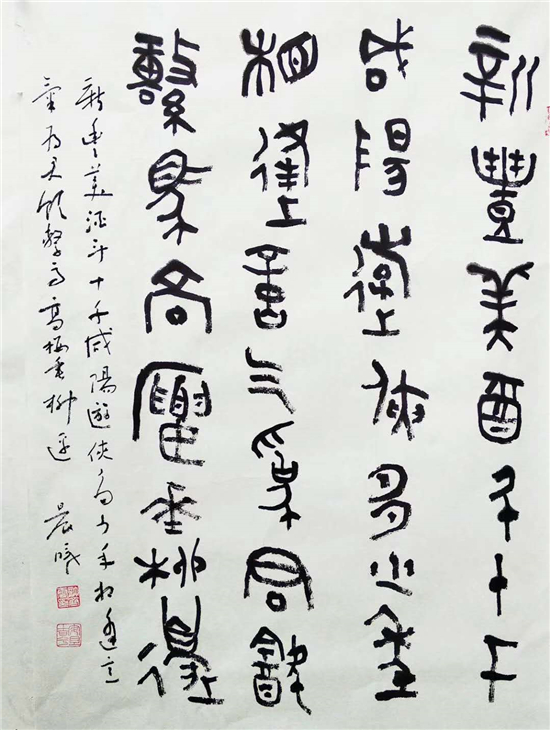 新豐美酉斗十千
咸陽遊俠多少年
相逢意气為君飲
繫馬高樓垂柳邊
新豐美酒斗十千咸陽遊俠多少年相逢意
氣為君飲繫馬高樓垂柳邊 晨曦